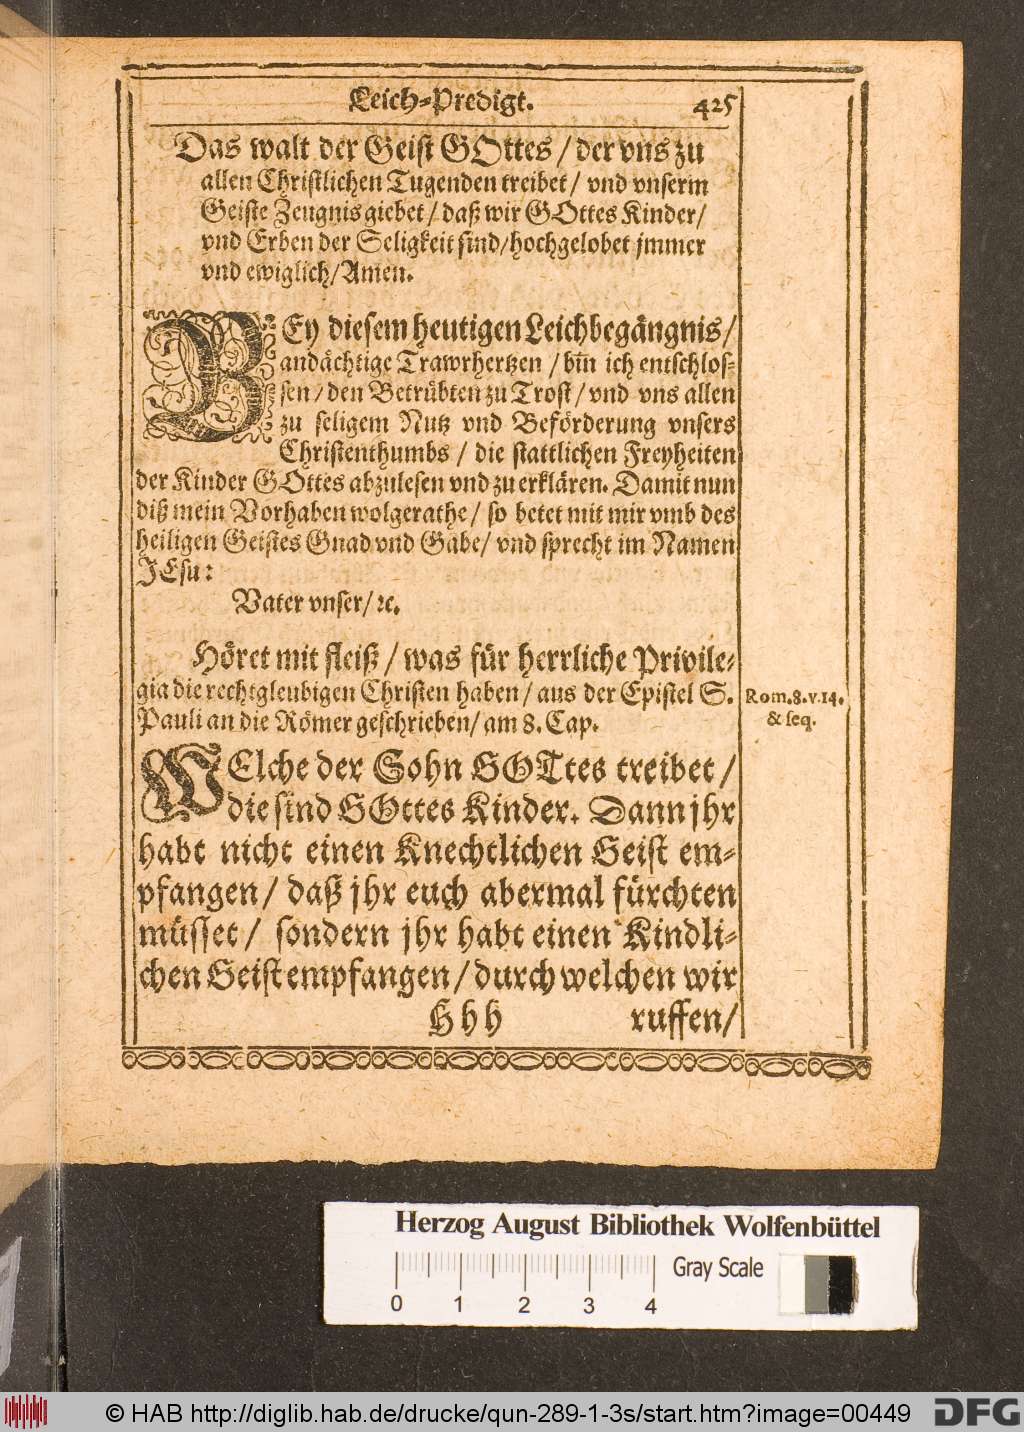 Leich-Predigt. 425
Das walt der Geist GOttes / der vns zu
allen Christlichen Tugenden treibet / vnd vnserm
Geiste Zeugnis giebet / daß wir GOttes Kinder /
vnd Erben der Seligkeit sind / hochgelobet jmmer
vnd ewiglich / Amen.
BEy diesem heutigen Leichbegängnis /
andächtige Trawrhertzen / biñ ich entschlos-
sen / den Betrübten zu Trost / vnd vns allen
zu seligem Nutz vnd Beförderung vnsers
Christenthumbs / die stattlichen Freyheiten
der Kinder GOttes abzulesen vnd zu erklären. Damit nun
diß mein Vorhaben wolgerathe / so betet mit mir vmb des
heiligen Geistes Gnad vnd Gabe / vnd sprecht im Namen
JEsu:
Vater vnser / ꝛc.
Höret mit fleiß / was für herrliche Privile-
gia die rechtgleubigen Christen haben / aus der Epistel S.
Pauli an die Römer geschrieben / am 8. Cap.
Rom. 8. v. 14.
& seq.
WElche der Sohn GOTtes treibet /
die sind GOttes Kinder. Dann jhr
habt nicht einen Knechtlichen Geist em-
pfangen / daß jhr euch abermal fürchten
müsset / sondern jhr habt einen Kindli-
chen Geist empfangen / durch welchen wir
Hhh ruffen /
Herzog August Bibliothek Wolfenbüttel
Gray Scale
0 1 2 3 4
© HAB http://diglib.hab.de/drucke/qun-289-1-3s/start.htm?image=00449
DFG